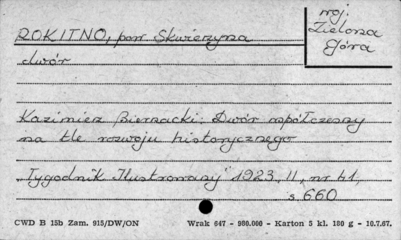 woj.
Zielona
Góra
ROKITNO, pow Skwierzyna
dwór
Kazimierz Biernacki. Dwór współczesny
na tle rozwoju historycznego
"Tygodnik Ilustrowany" 1923, II, nr 41,
s. 660
CWD B 15b Zam. 915/DW/ON Wrak 647 - 980.000 - Karton 5 kl. 180 g - 10.7.67.